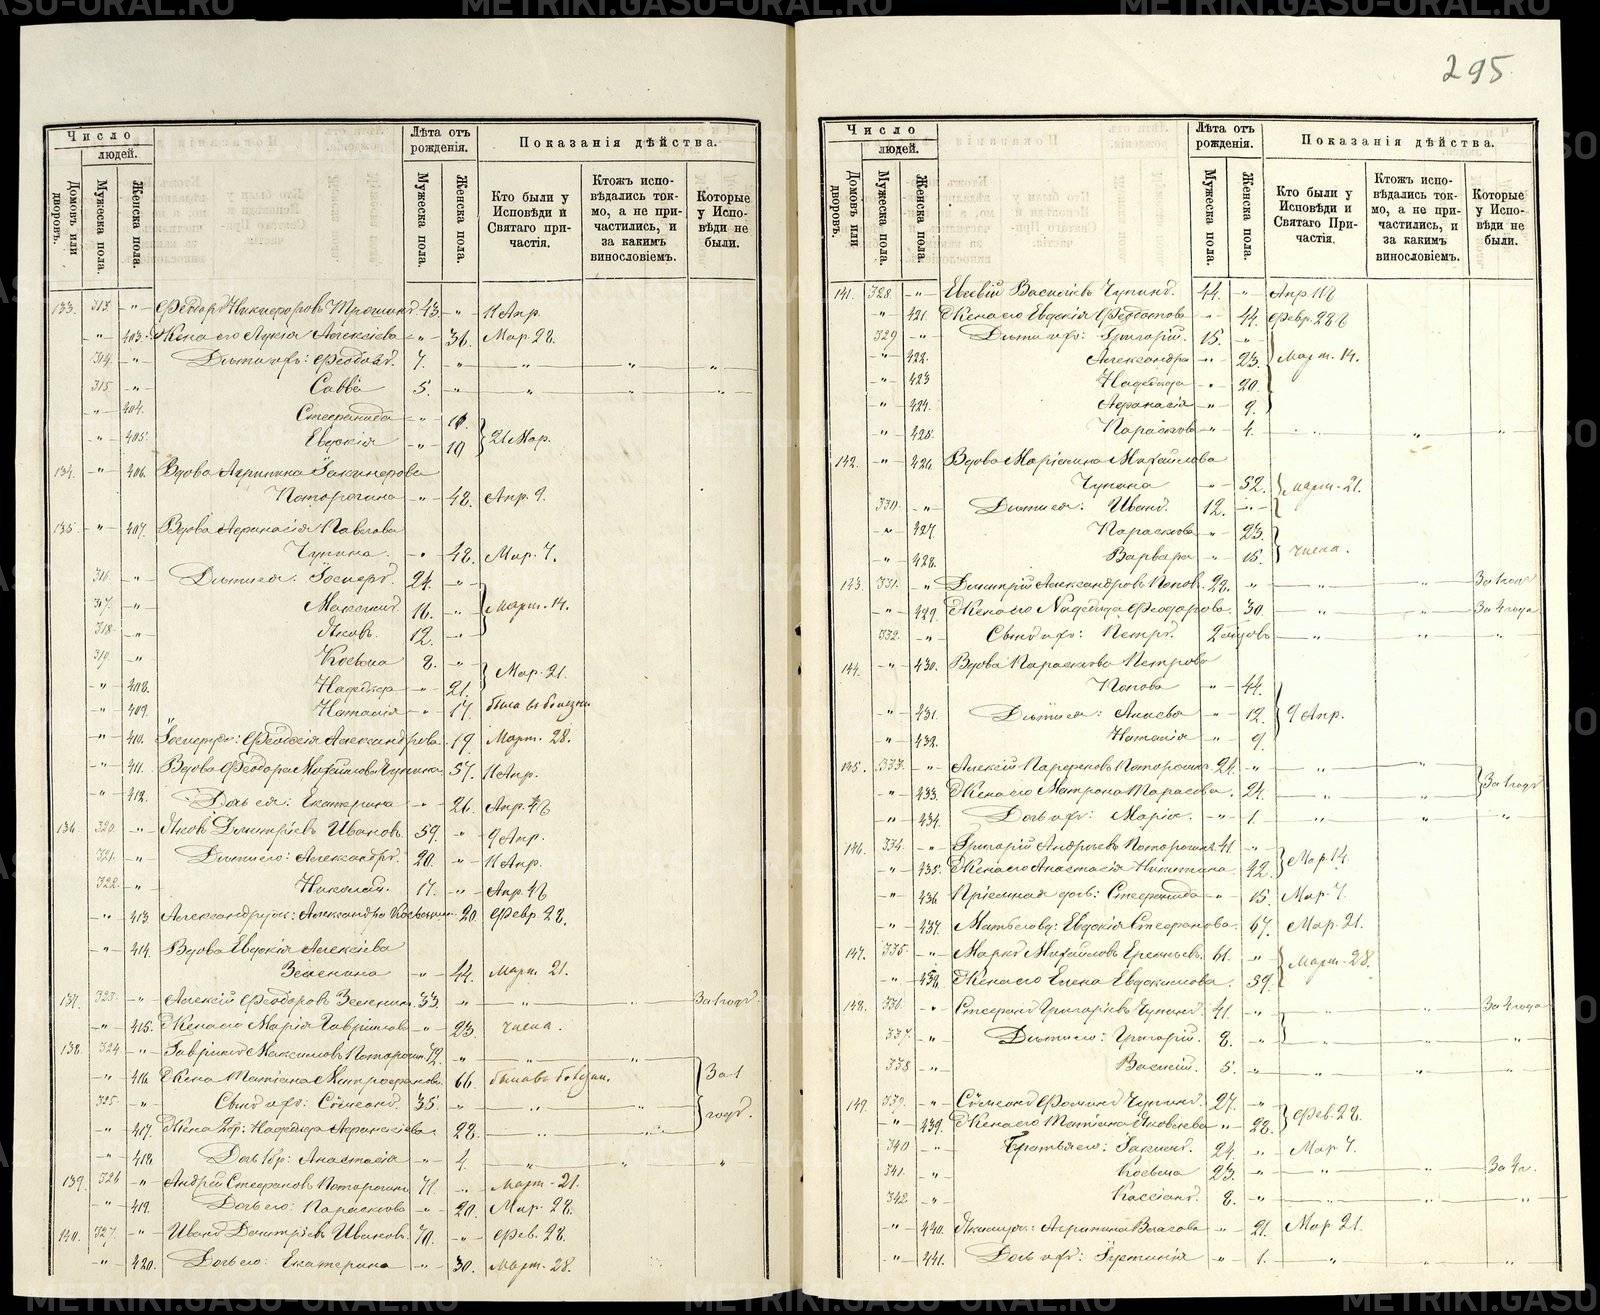 295
Число
людей.
Домовъ или дворовъ.
Мужеска пола.
Женска пола.
Лѣта отъ рожденія.
Мужеска пола.
Женска пола.
Показанія дѣйства.
Кто были у Исповѣди и Святаго При-частія.
Ктожъ испо-вѣдались ток-мо, а не при-частились, и за какимъ винословіемъ.
Которые у Испо-вѣди не были.
133. 313. -„- Ѳеодоръ Никифоровъ 43. -„- 11 Апр.
-„- 403. Жена его Лукія Алексіева -„- 36. Мар. 28.
314 -„- Дѣти ихъ: 7. -„-
315 -„- Савва 5. -„-
-„- 404. Стефанида -„-
-„- 405. Евдокія -„- 10 21 Мар.
134. -„- 406. Вдова Агрипина
Поторочина -„- 48. Апр. 9.
135. -„- 407. Вдова Афанасія Павлова
Чупина. -„- 48. Мар. 7.
316. -„- Дѣти ея: Іосифъ. 24. -„-
317. -„- Максимъ. 16. -„- Март. 14.
318. -„- Яковъ. 12. -„-
319. -„- Косьма 8. -„-
-„- 408. Надежда -„- 21. Мар. 21.
-„- 409. Наталія -„- 17. была въ болезни
-„- 410. Ѳеодосія Александрова. 19. Март. 28.
-„- 411. Вдова Ѳеодора Михаилова Чупина 57. 11 Апр.
-„- 412. Дочь ея: Екатерина -„- 26. Апр.
136. 320. -„- Яковъ Димитріевъ Ивановъ. 59. -„- 9 Апр.
321. -„- Дѣти его: Александръ. 20. -„- 11 Апр.
322. -„- Николай. 17. -„- Апр.
-„- 413 Александра 20. Февр. 28.
-„- 414. Вдова Евдокія Алексіева
Зеленина -„- 44. Март. 21.
137. 323. -„- Алексій Ѳеодоровъ Зеленинъ 33. -„- За 1 годъ.
-„- 415. Жена его Марія Гавріилова -„- 23. числа.
138. 324 -„- Гавріилъ Максимовъ 72. -„-
-„- 416. Жена Татіана Митрофанова. 66. была въ болѣзни. За 1
325. -„- Сынъ ихъ: Сѵмеонъ. 35. -„- годъ.
-„- 417. Жена Надежда Афанасіева 28.
-„- 418. Дочь Анастасія -„- 4.
139. 326 -„- Андрей Стефановъ Поторочинъ 71. -„- Март. 21.
-„- 419. Дочь его: Параскева -„- 20. Мар. 28.
140. 327. -„- Иванъ Димитріевъ Ивановъ. 70. -„- Фев. 28.
-„- 420. Дочь его: Екатерина -„- 30. Март. 28.
Число
людей.
Домовъ или дворовъ.
Мужеска пола.
Женска пола.
Лѣта отъ рожденія.
Мужеска пола.
Женска пола.
Показанія дѣйства.
Кто были у Исповѣди и Святаго При-частія.
Ктожъ испо-вѣдались ток-мо, а не при-частились, и за какимъ винословіемъ.
Которые у Испо-вѣди не были.
141. 328. -„- Евсевій Василіевъ Чупинъ. 44. -„- Апр.
-„- 421. Жена его Евдокія Ѳедотова -„- 44. Февр. 28
329 -„- Дѣти ихъ: Григорій. 15. -„-
-„- 422. Александра -„- 23. Март. 14.
-„- 423 Надежда -„- 20.
-„- 424. Афанасія -„- 9.
-„- 425. Параскева -„- 4.
142. -„- 426. Вдова Маріанна Михайлова
Чупина -„- 52. Март. 21.
330. -„- Дѣти ея: Иванъ. 12. -„-
-„- 427. Параскева -„- 23.
-„- 428. Варвара -„- 15. числа.
143. 331. -„- Димитрій Александровъ Поповъ. 28. -„- За 1 годъ
-„- 429. Жена его Надежда Ѳеодорова. 30 За 4 года
332. -„- Сынъ ихъ: Петръ. 2
144. -„- 430. Вдова Параскева Петрова
Попова -„- 44.
-„- 431. Дѣти ея: -„- 12. 9 Апр.
-„- 432. Наталія -„- 9.
145. 333. -„- Алексій 24. -„-
-„- 433. Жена его Матрона Тарасова. 24. За 1 годъ
-„- 434. Дочь ихъ: Марія. -„- 1.
146. 334. -„- Григорій Андреевъ Поторочинъ 41 -„-
-„- 435. Жена его Анастасія Никитина. 42. Мар. 14.
-„- 436 Пріемная дочь: Стефанида -„- 15. Мар. 7.
-„- 437. Мать его вд: Евдокія Стефанова. 67. Мар. 21.
147. 335. -„- Маркъ Михайловъ 61. -„-
-„- 438. Жена его Елена Евдокимова. 59. Март. 28.
148. 336. -„- Стефанъ Григоріевъ Чупинъ. 41. -„- За 4 года
337. -„- Дѣти его: Григорій. 8. -„-
338 -„- Василій. 5. -„-
149. 339. -„- Сѵмеонъ Ѳоминъ Чупинъ. 27. -„-
-„- 439. Жена его Татіана Яковлева -„- 28. Фев. 28.
340 -„- Братья его: 24. -„- Мар. 7.
341. -„- Косьма 23. -„- За 4 г.
342. -„- Кассіанъ. 8. -„-
-„- 440. Агрипина Власова -„- 21. Мар. 21.
-„- 441. Дочь ихъ: Іустинія -„- 1.
METRIKI.GASU-URAL.RU